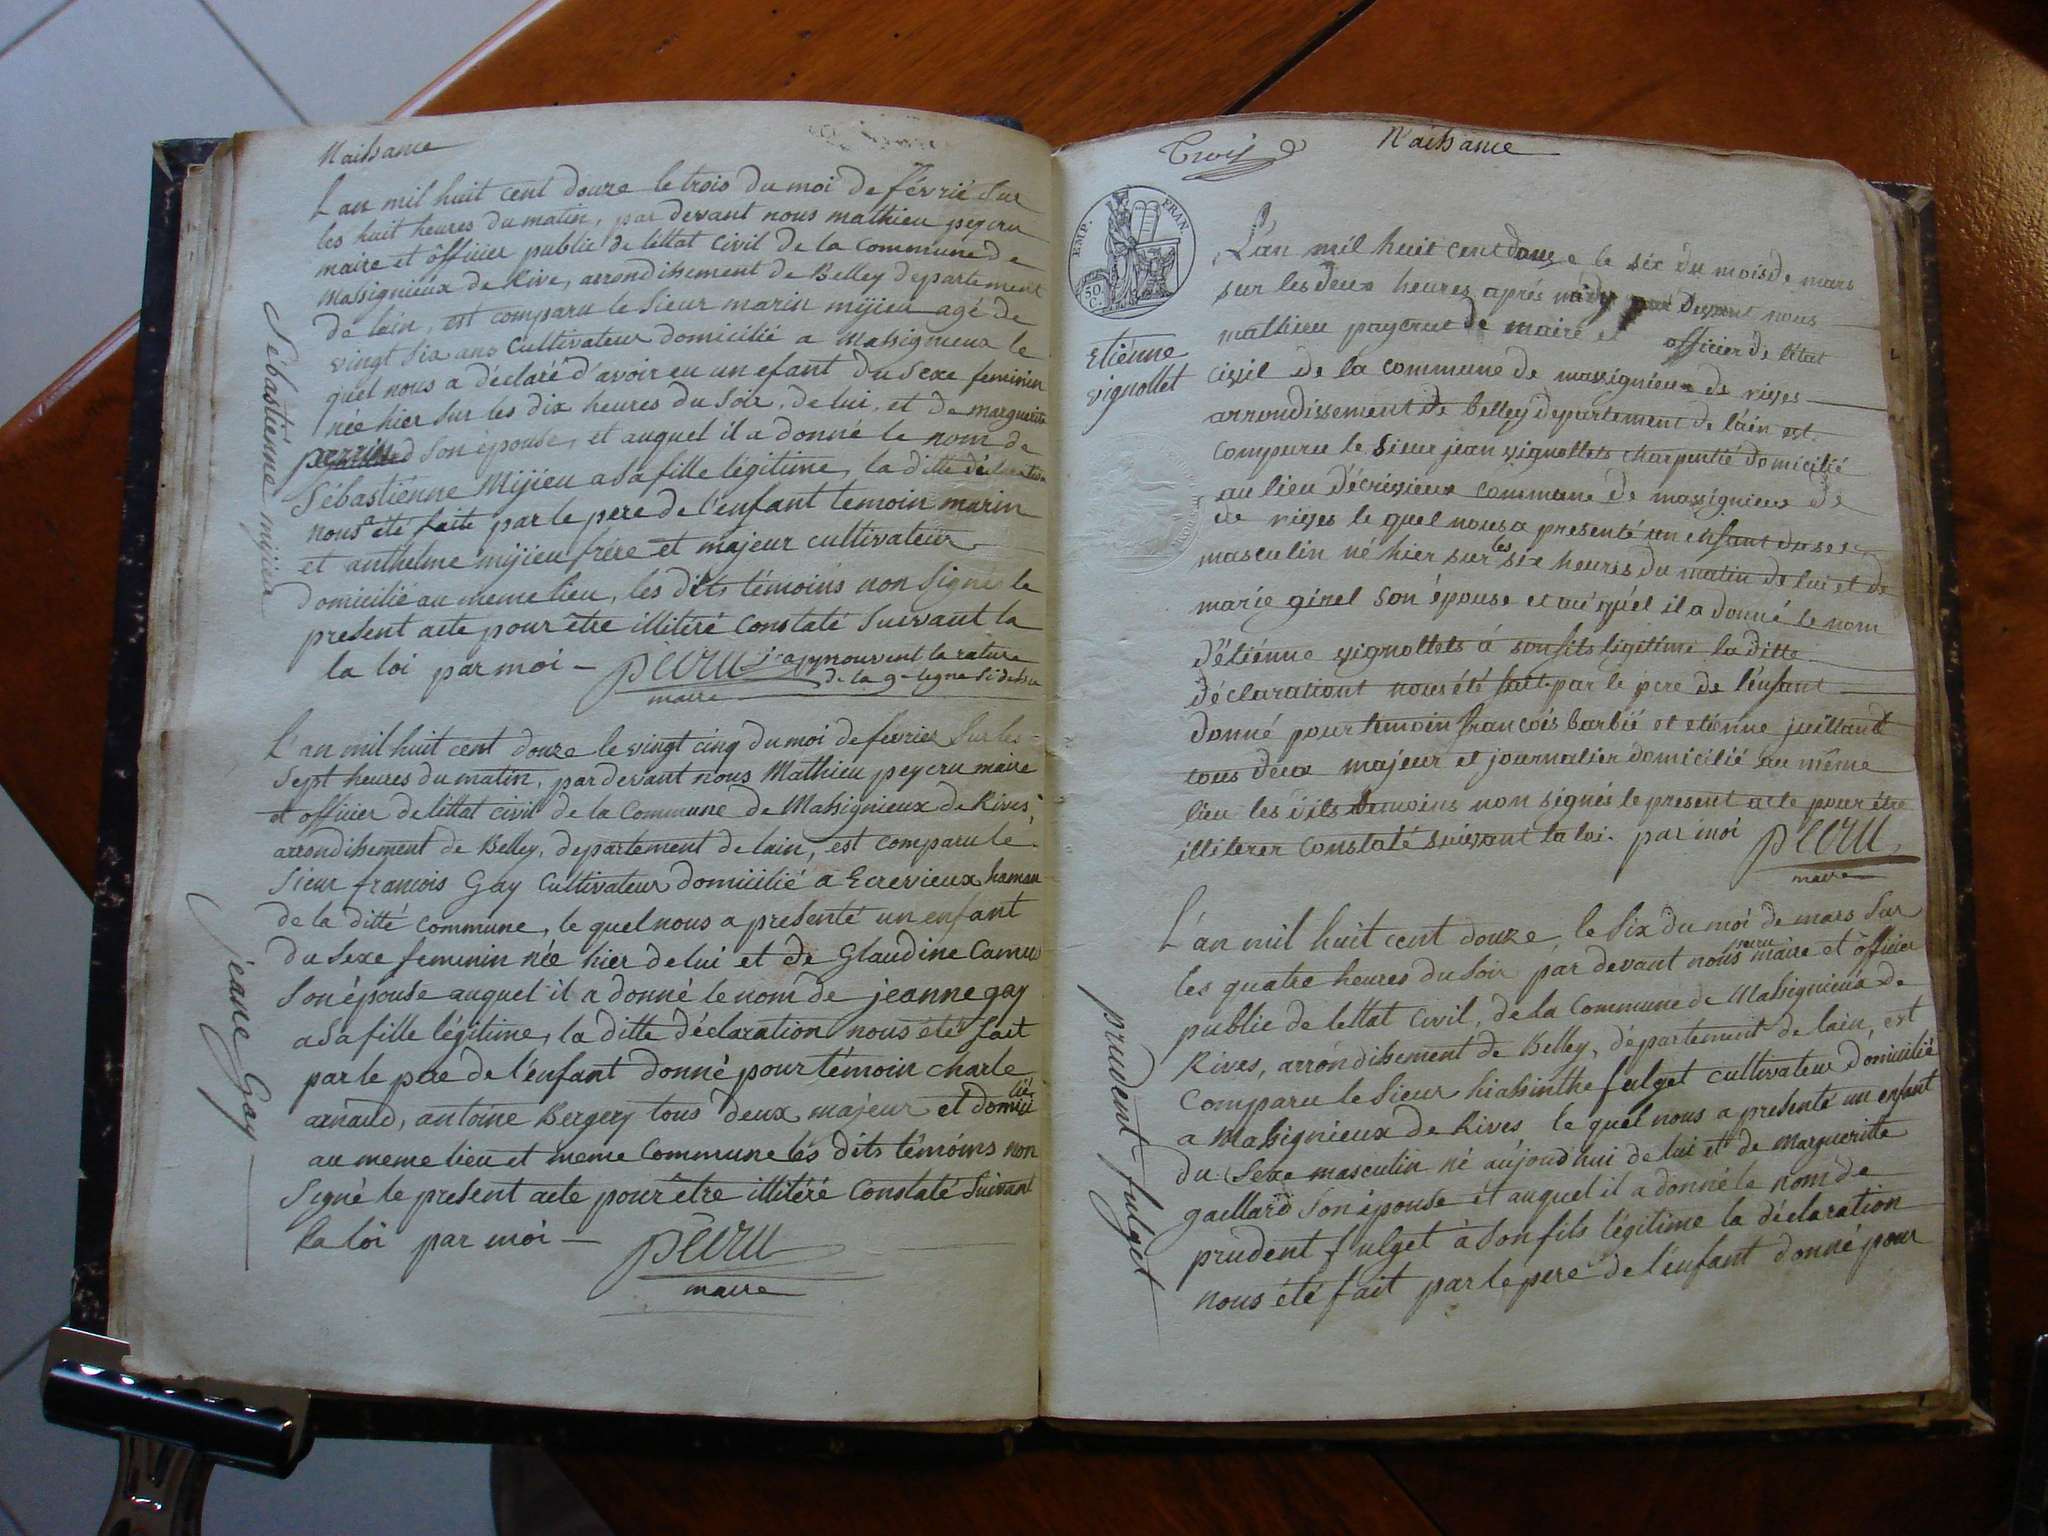 Naissance
L'an mil huit cent douze le trois du moi de févrié sur
les huit heures du matin, par devant nous mathieu peycru
maire et ôfficier public de lettat civil de la Commune de
Massignieux de Rive, arrondissement de Belley departement
de lain, est comparu le Sieur marin mijieu agé de
vingt six ans Cultivateur domicilié a Massignieux le
quel nous a déclaré d'avoir eu un efant du Sexe feminin
née hier sur les dix heures du Soir, de lui, et de marguerite
perrin Son épouse, et auquel il a donné le nom de
Sébastiénne Mijieu a Sa fille légitime, la ditte déclaration
nous été faite par le pere de l'enfant temoin marin
et anthelme mijieu frére et majeur cultivateur
domicilié au meme lieu, les dits témoins non Signé le
présent acte pour être illitéré Constaté Suivant la
la loi par moi – pécru j'apynouvent la rature
de la 9e ligne Si dessu
maire
Sébastiénne mijieu
L'an mil huit cent douze le vingt cinq du moi de fevrier Sur les
Sept heures du matin, par devant nous Mathieu peycru maire
et officier de lettat civil de la Commune de Massignieux de Rives,
arrondissement de Belley, departement de lain, est comparu le
Sieur francois Gay Cultivateur domicilié a Ecrevieux haman
de la ditté Commune, le quel nous a presenté un enfant
du Sexe feminin née hier de lui et de Glaudine Camus
Son épouse auquel il a donné le nom de jeanne gay
a Sa fille légitime, la ditte déclaration nous été fait
par le pere de l'enfant donné pour témoin charle
arnaud, antoine Bergery tous deux majeur et domicilié
au meme lieu et meme Commune les dits témoins non
Signé le present acte pour être illitéré Constaté Suivant
la loi par moi –
pécru
maire
jeane Gay
Trois
Naissance
EMP. FRAN.
50 C.
Etiénne
vignollet
L'an mil huit cent douze le six du mois de mars
sur les deux heures aprés midy par devant nous
mathieu paycrut de maire et officier de l'état
civil de la commune de massignieux de rives
arrondissement de belley departement de l'ain est
comparu le sieur jean vignollets charpentié domicilié
au lieu d'écrivieux commune de massignieux de
de rives le quel nous a presenté un enfant du sexe
masculin né hier sur les six heures du matin de lui et de
marie ginel son épouse et au quel il a donné le nom
d'étiénne vignollets á son fits legitime la ditte
déclarationt nous été fait par le pere de l'énfant
donné pour temoin francois barbié et etienne juillant
tous deux majeur et journalier domicilié au même
lieu les dits temoins non signés le present acte pour être
illiterer constaté suivant la loi. par moi pécru
maire
L'an mil huit cent douze, le Six du moi de mars Sur
les quatre heures du Soir par devant nous pécru maire et ôfficier
public de lettat Civil, de la Commune de Massignieux de
Rives, arrondissement de Belley, département de lain, est
Comparu le Sieur hiassinthe fulget cultivateur domicilié
a Massignieux de Rives le quel nous a presenté un enfant
du Sexe masculin né aujourd'hui de lui et de Margueritte
gaillard Son épouse et auquel il a donné le nom de
prudent fulget à Son fils légitime la déclaration
nous été fait par le pere de l'enfant donné pour
prudent fulget